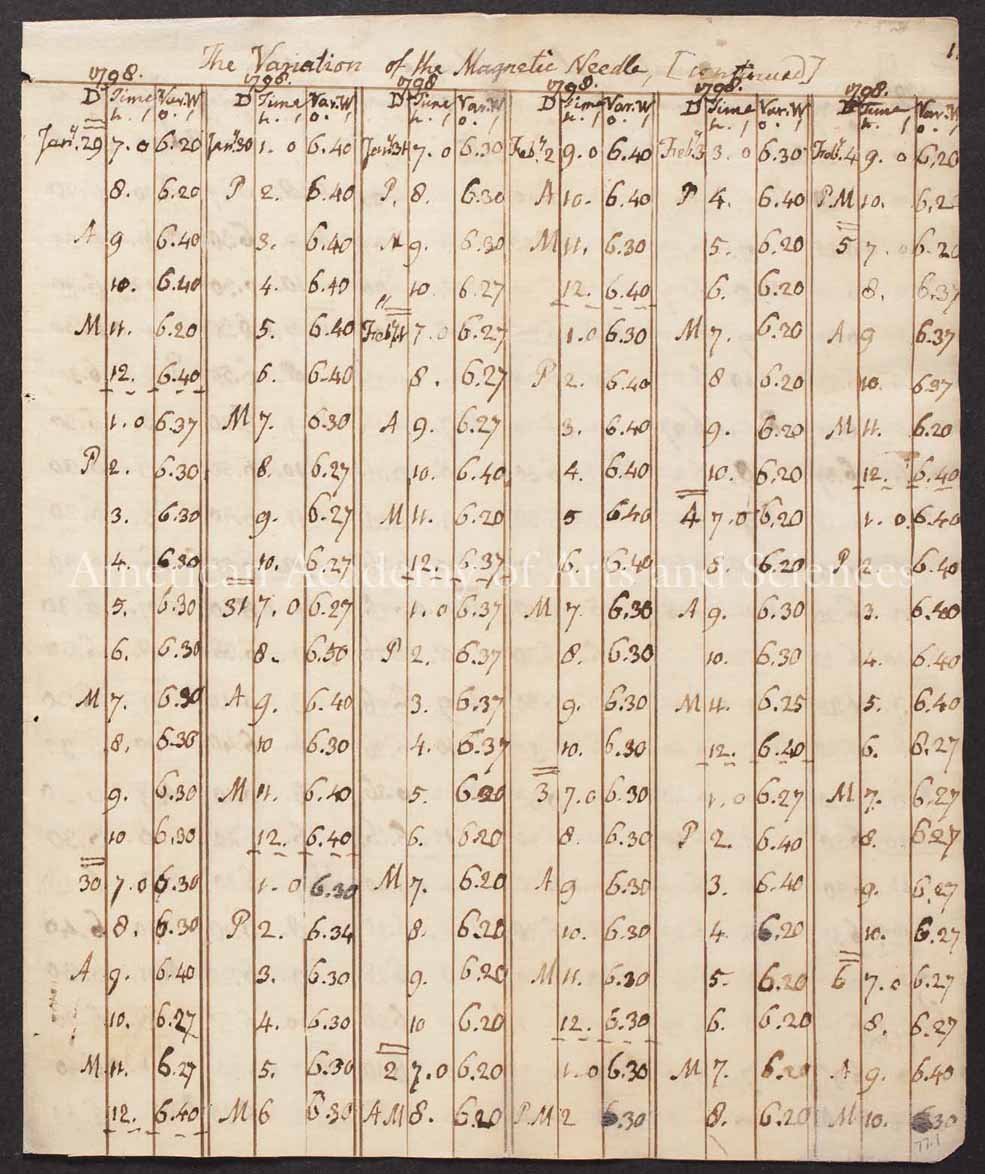 1.
The Variation of the Magnetic Needle, [continued]
1798. 1798. 1798. 1798. 1798. 1798.
D Time Var.W D Time Var.W D Time Var.W D Time Var.W D Time Var.W D Time Var.W
h. / o. / h. / o. / h. / o. / h. / o. / h. / o. / h. / o. /
Jany. 29 7.0 6.20 Jany 30 1.0 6.40 Jany 31 7.0 6.30 Feby. 2 9.0 6.40 Feby. 3 3.0 6.30 Feby. 4 9.0 6.20
8. 6.20 P 2. 6.40 P. 8. 6.30 A 10. 6.40 P 4. 6.40 P.M 10.
A 9 6.40 3. 6.40 9. 6.30 M 11. 6.30 5. 6.20 5 7.0 6.20
10. 6.40 4. 6.40 10. 6.27 12. 6.40 6. 6.20 8. 6.37
M 11. 6.20 5. 6.40 Feby 7.0 6.27 1.0 6.30 M 7. 6.20 A 9 6.37
12. 6.40 6. 6.40 8. 6.27 P 2. 6.40 8 6.20 10. 6.37
1.0 6.37 M 7. 6.30 A 9. 6.27 3. 6.40 9. 6.20 M 11. 6.20
P 2. 6.30 8. 6.27 10. 6.40 4. 6.40 10. 6.20 12. 6.40
3. 6.30 9. 6.27 M 11. 6.20 5 6.40 4 7.0 6.20 1.0 6.40
4. 6.30 10. 6.27 12. 6.37 6. 6.40 8. 6.20 P 2. 6.40
American Academy of Arts and Sciences
5. 6.30 31 7.0 6.27 1.0 6.37 M 7. 6.30 A 9. 6.30 3. 6.40
6. 6.30 8. 6.50 P 2. 6.37 8. 6.30 10. 6.30 4. 6.40
M 7. 6.30 A 9. 6.40 3. 6.37 9. 6.30 M 11. 6.25 5. 6.40
8. 6.30 10 6.30 4. 6.37 10. 6.30 12. 6.40 6. 6.27
9. 6.30 M 11. 6.40 5. 6.20 3 7.0 6.30 1.0 6.27 M 7. 6.27
10. 6.30 12. 6.40 6. 6.20 8. 6.30 P 2. 6.40 8. 6.27
30 7.0 6.30 1.0 6.30 M 7. 6.20 A 9 6.30 3. 6.40 9. 6.27
8. 6.30 P 2. 6.34 8. 6.20 10. 6.30 4. 6.20 10. 6.27
A 9. 6.40 3. 6.30 9. 6.20 M 11. 6.30 5. 6.20 6 7.0 6.27
10. 6.27 4. 6.30 10 6.20 12. 6.30 6. 6.20 8. 6.27
M 11. 6.27 5. 6.30 2 7.0 6.20 1.0 6.30 M 7. 6.20 A 9. 6.40
12. 6.40 M 6 6.30 A M 8. 6.20 P.M 2 6.30 8. 6.20 M 10. 6.30